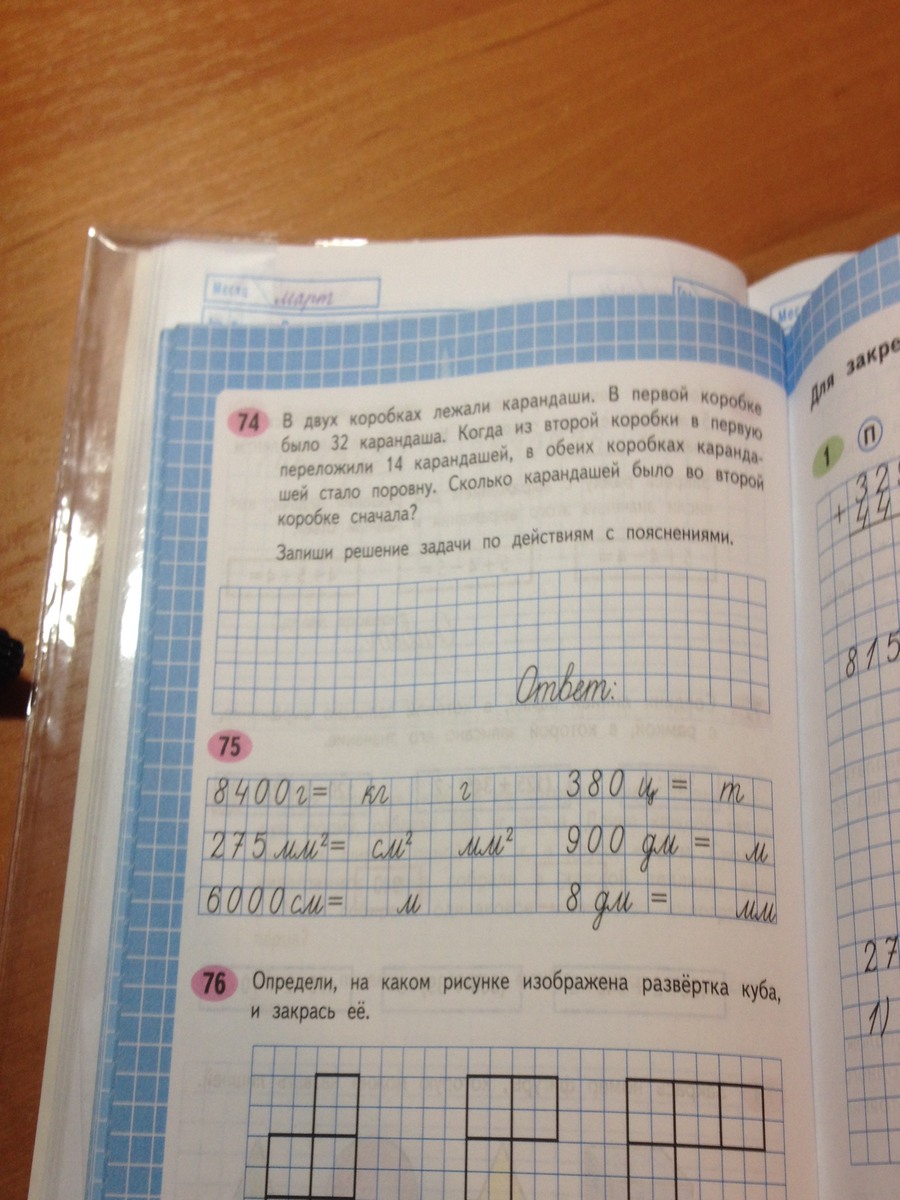 март
74 В двух коробках лежали карандаши. В первой коробке
было 32 карандаша. Когда из второй коробки в первую
переложили 14 карандашей, в обеих коробках каранда-
шей стало поровну. Сколько карандашей было во второй
коробке сначала?
Запиши решение задачи по действиям с пояснениями.
Ответ:
75
8400 г = кг г 380 ц = т
275 мм² = см² мм² 900 дм = м
6000 см = м 8 дм = мм
76 Определи, на каком рисунке изображена развёртка куба,
и закрась её.
Для
1 П
+ 44
815
27
1)